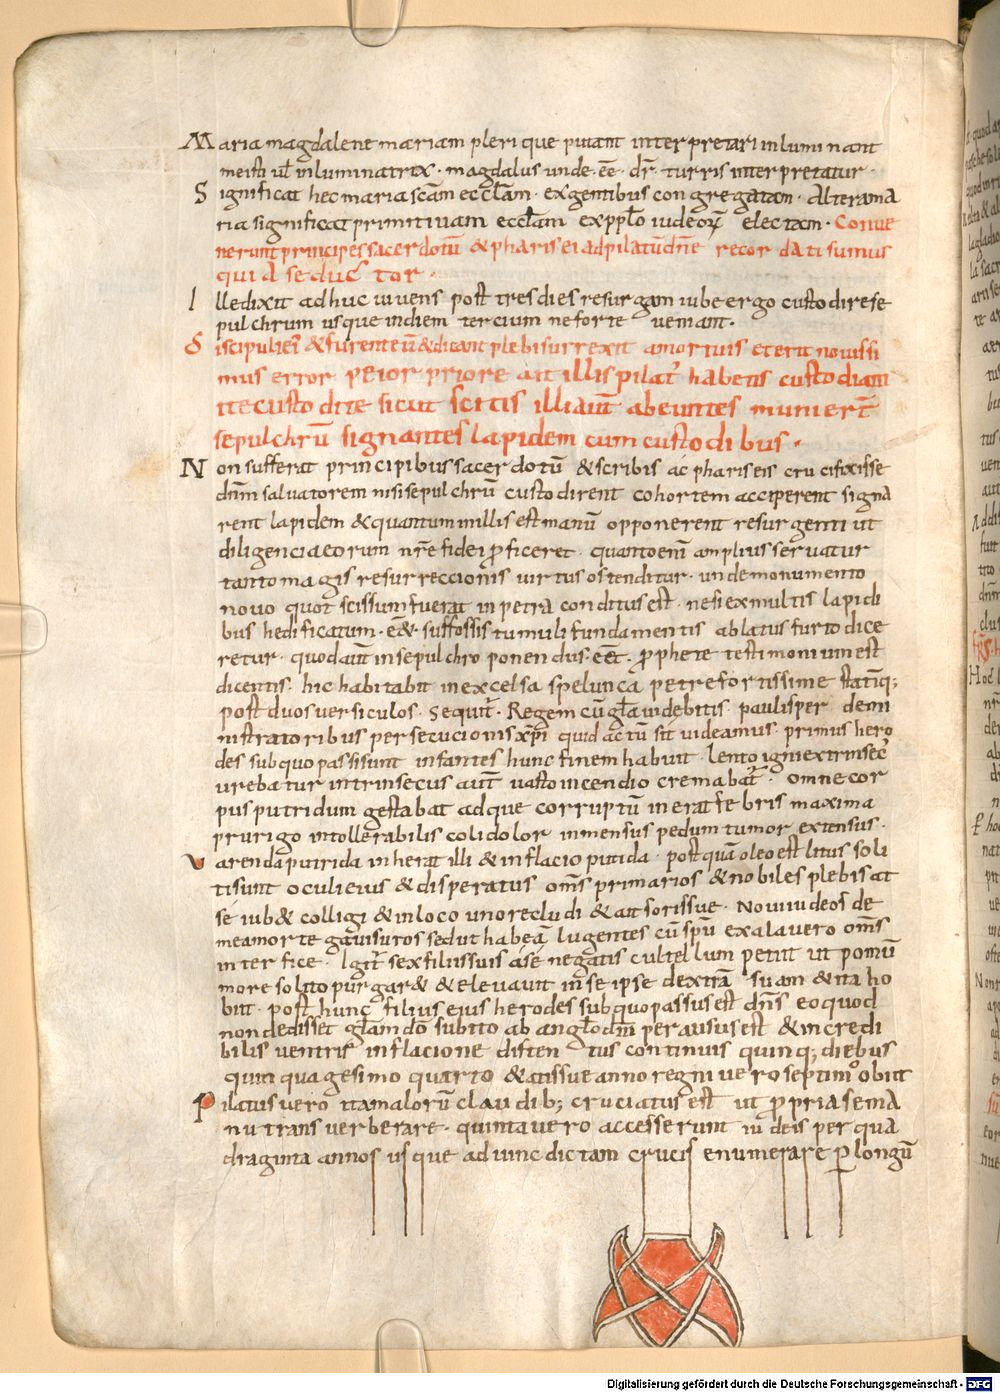 Maria magdalene mariam pleri que putant interpretari inluminant
mei st ul inluminatrix · magdalus unde · ee · dr turris interpretatur ·
Significat hec maria scam ecclam · ex gentibus con gregatam · Altera ma
ria significat primitivam ecclam ex pplo iudeorum electam · Conve
nerunt principes sacerdotu & pharisei ad pilatu dne recor da ti sumus
qui a se duc tor ·
Ille dixit ad huc vivens post tres dies resurgam iube ergo custodire se
pulchrum usque in diem tercium ne forte veniant ·
discipuli ei & furent eu & dicant plebi surrexit a mortuis et erit novissi
mus error peior priore ait illis pilat habetis custodiam
ite custo dite sicut scitis illi aut abeuntes munier
sepulchru signantes lapidem cum custodibus ·
Non sufferat principibus sacerdotu & scribis ac phariseis crucifixisse
dnm salvatorem nisi sepulchru custodirent cohortem acciperent signa
rent lapidem & quantum in illis est manu opponerent resurgenti ut
diligencia eorum nre fidei proficeret · quanto eni amplius servatur
tanto magis resurreccionis virtus ostenditur · unde monumento
novo quot scissum fuerat in petra conditus est · ne si ex multis lapidi
bus hedificatum · e& suffossis tumuli fundamentis ablatus furto dice
retur · quod aut in sepulchro ponendus · eet · prophete testimonium est
dicentis · hic habitabit in excelsa spelunca petre fortissime statiq;
post duos versiculos · sequit · Regem cu gla videbitis · paulisper de mi
nistratoribus persecucionis xpi quid actu sit videamus · primus hero
des sub quo passi sunt infantes hunc finem habuit · lento igni extrinsec
urebatur intrinsecus aut vasto incendio cremabat · omne cor
pus putridum gestabat adque corruptu inerat febris maxima
prurigo intollerabilis coli dolor inmensus pedum tumor extensus ·
varenda putrida inherat illi & inflacio putida · post qua oleo est litus soli
ti sunt oculi eius & disperatus oms primarios & nobiles plebis at
se iub& colligi & in loco uno recludi & ait sorissue · Novi iudeos de
mea morte gavisuros sed ut habea lugentes cu spu exalavero oms
interfice · Igit sex filiis suis a se negatis cultellum petiit ut pomu
more solito purgar& & elevavit in se ipse dextra suam & ita ho
biit · post hunc filius eius herodes sub quo passus est dns eo quod
non dedisset glam do subito ab anglo dni percussus est & incredi
bilis ventris inflacione disten tus continuis quinq; diebus
quinquagesimo quarto &atis sue anno regni vero septimo obiit
Pilatus vero ita maloru claudib; cruciatus est ut propria se ma
nu transverberare · quinta vero accesserunt iudeis per qua
draginta annos usque ad vinc dictam crucis enumerare p longu